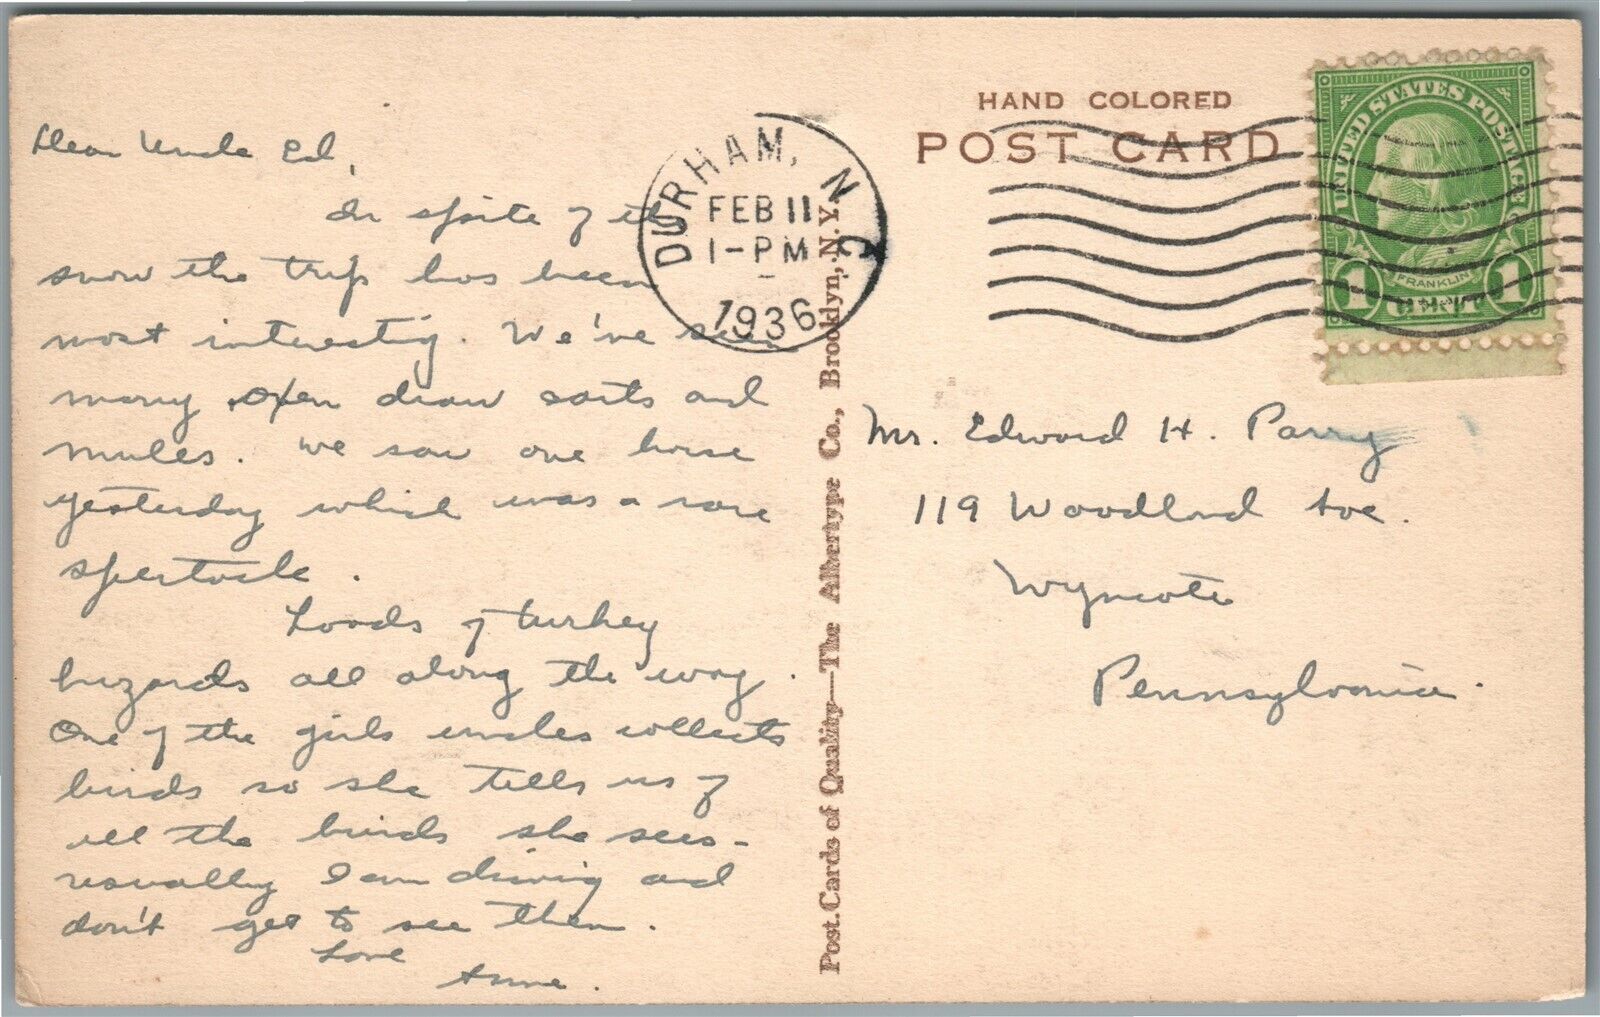 Dear Uncle Ed,
In spite of the
snow the trip has been
most interesting. We've seen
many oxen draw carts and
mules. We saw one horse
yesterday which was a rare
spectacle.
Loads of turkey
buzards all along the way.
One of the girls uncles collects
birds so she tells us of
all the birds she sees -
usually I am driving and
don't get to see them.
Love
Anne.
DURHAM, N.C.
FEB 11
1-PM
1936
Post Cards of Quality—The Albertype Co., Brooklyn, N.Y.
HAND COLORED
POST CARD
UNITED STATES POSTAGE
FRANKLIN
1 CENT 1
Mr. Edward H. Parry
119 Woodland Ave.
Wyncote
Pennsylvania.